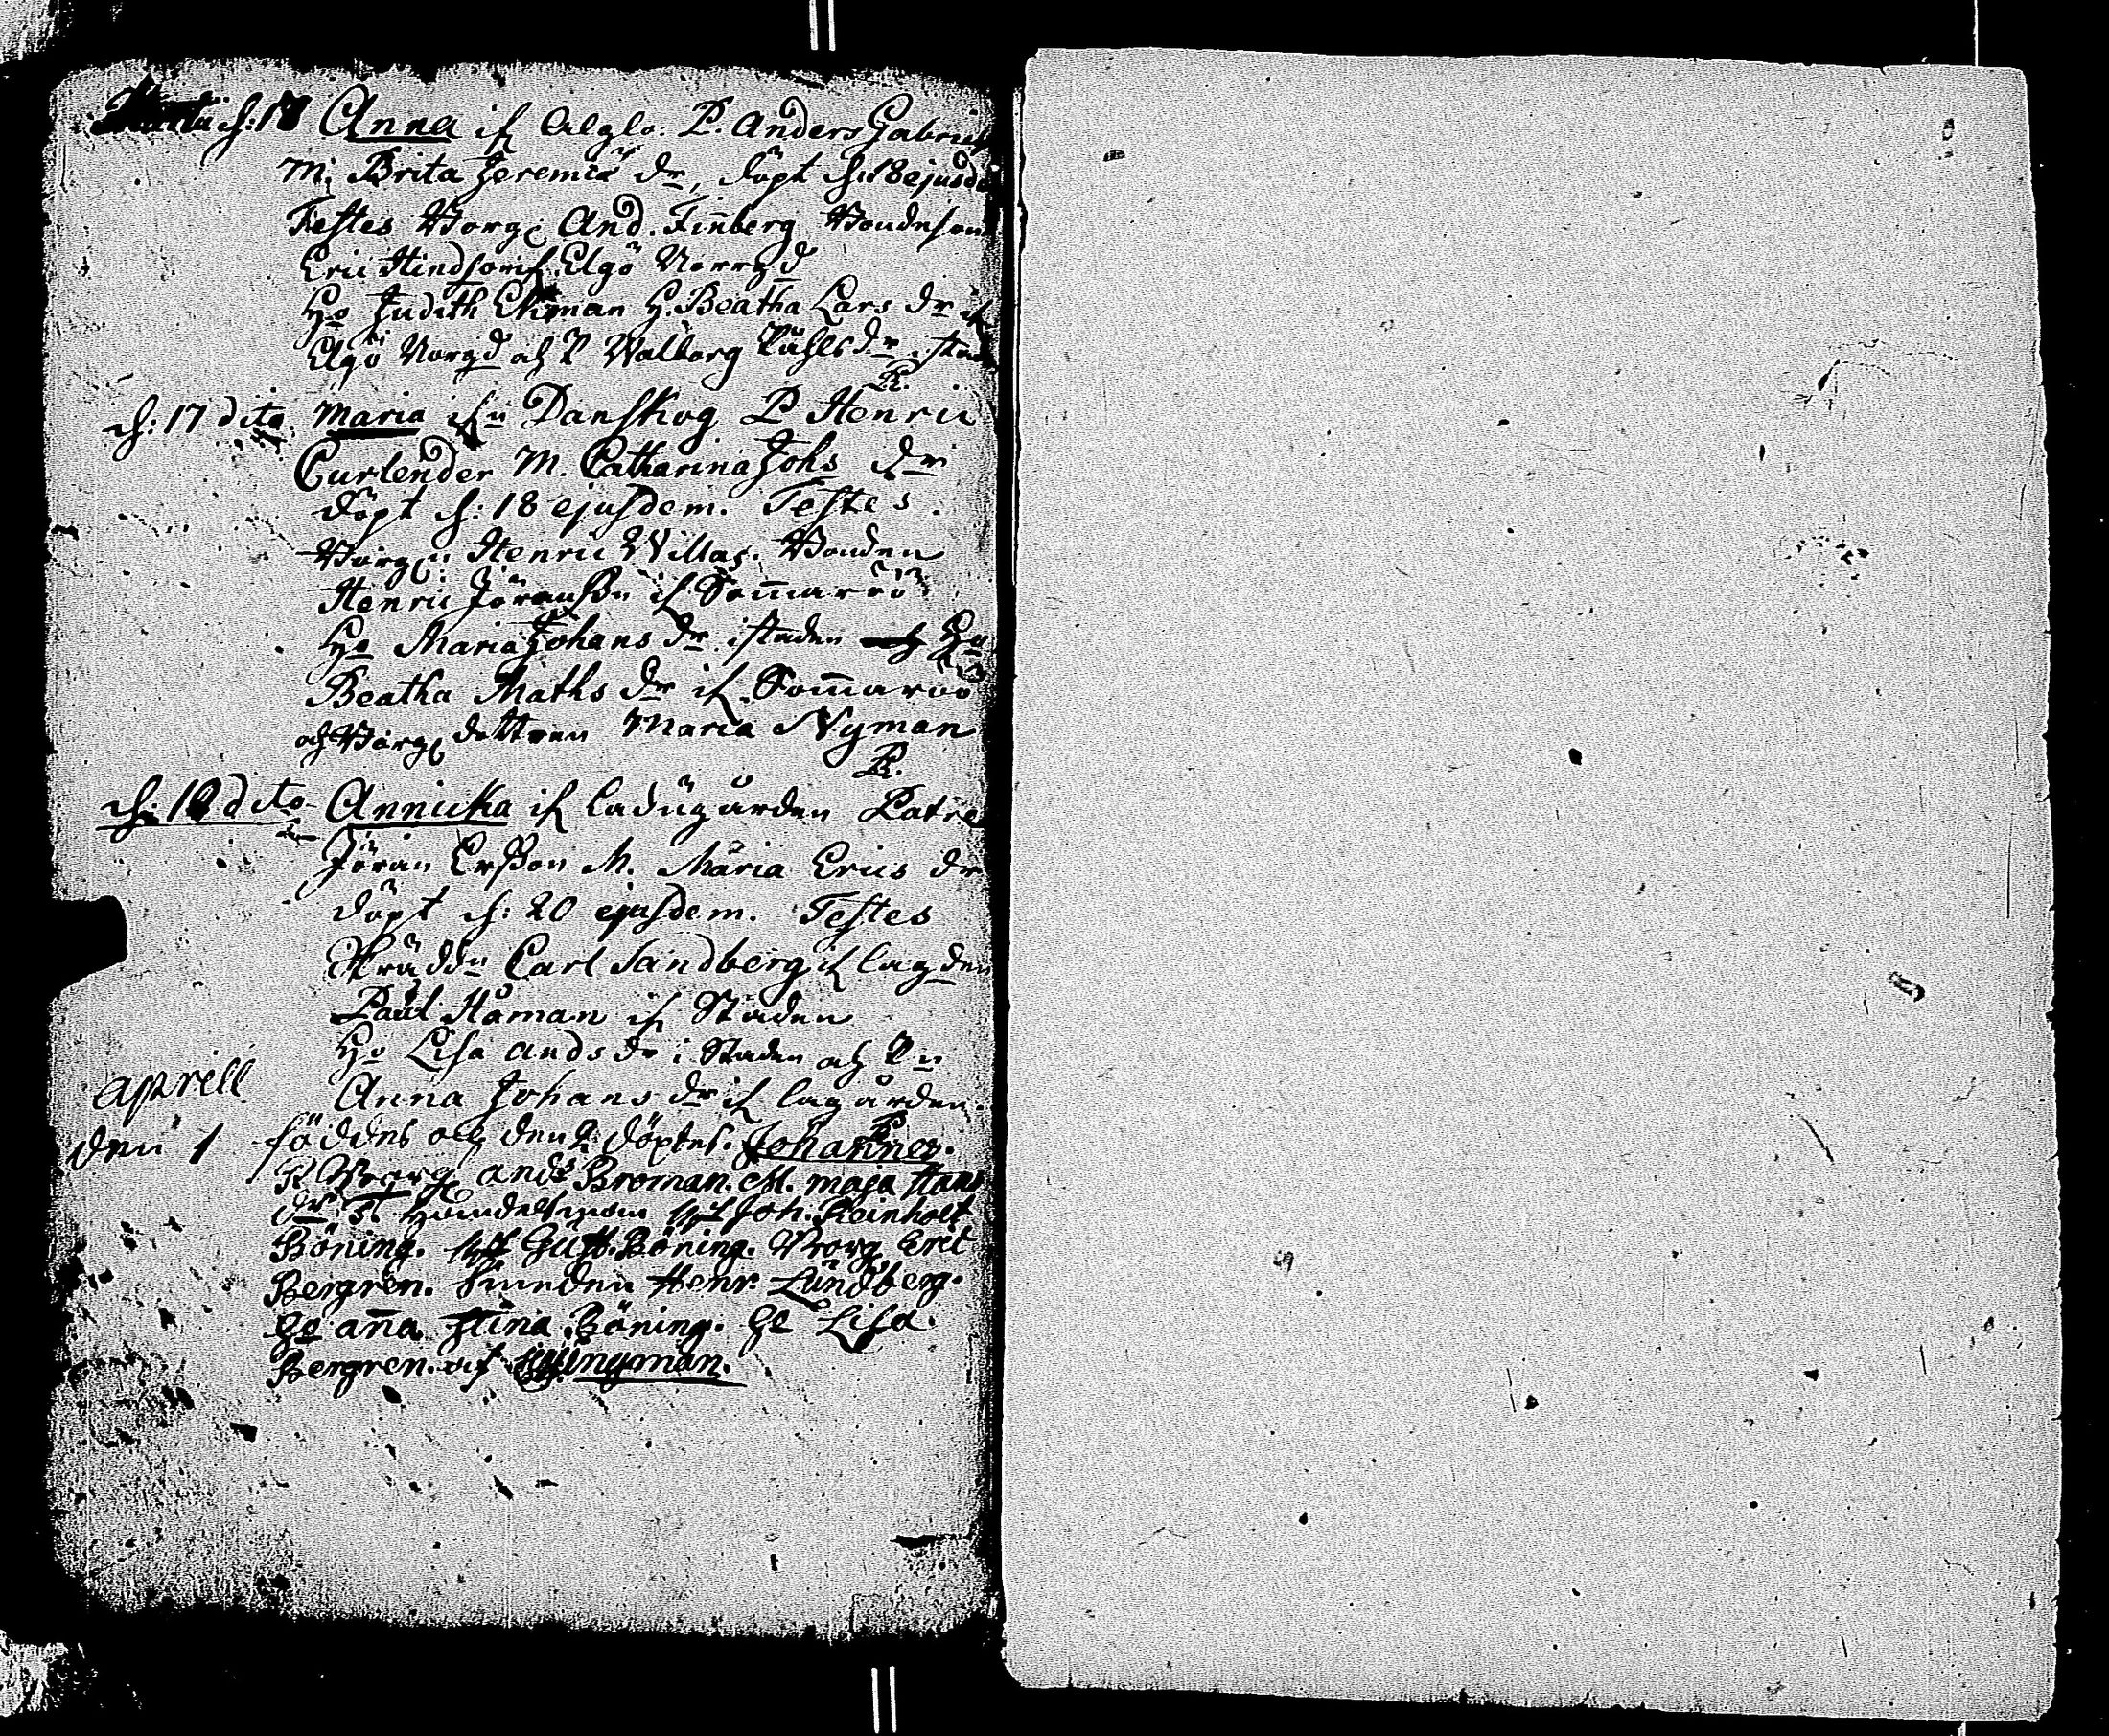 d: 18 Anna if Alglo: P. Anders Gabriels
M: Brita Jeremiæ dr, döpt d: 18 ejusde
Testes Borg: And. Finberg Bondeson
Eric Hindson if Elgö Norrgd
Ho Judith Ekman H. Beatha Lars dr if
Elgö Norgd och P Walborg Påhls dr i stad
R.
d: 17 dito Maria if Danskog P Henric
Curlender M. Catharina Johs dr
döpt d: 18 ejusdem. Testes.
Borg: Henric Willas. Bonden
Henric Jöransson if Somaröö
Ho Maria Johans dr i staden Ho
Beatha Maths dr if Somaröö
och Borg dottren Maria Nyman
R.
dito Annicka if Ladugården Patre
Jöran Ersson M. Maria Erics dr
döpt d: 20 ejusdem. Testes
Skräddn Carl Sandberg if Lagden
Paul Håman if Staden
Ho Lisa Ands dr i Staden och Pn
Anna Johans dr if Lagården.
Aprill
den 1 föddes och den 2 döptes. Johannes.
P Borg And: Broman. M. Maja Hans
dr T. Joh. Reinholt
Böning. Gust. Böning. Borg Eric
Bergren. Henr. Lundberg.
Ho Anna Stina Böning. Ho Lisa
Bergren. Nyman.